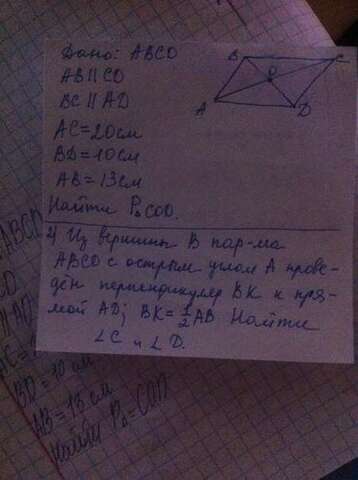 Дано: ABCD
AB || CD
BC || AD
AC = 20 см
BD = 10 см
AB = 13 см
Найти P△ COD.
B
C
O
A
D
2) Из вершины B пар-ма
ABCD с острым углом A прове-
дён перпендикуляр BK к пря-
мой AD; BK = 1/2 AB Найти
∠C и ∠D.
ABCD
CD
|| AD
AC =
BD = 10 см
AB = 13 см
Найти P△ = COD